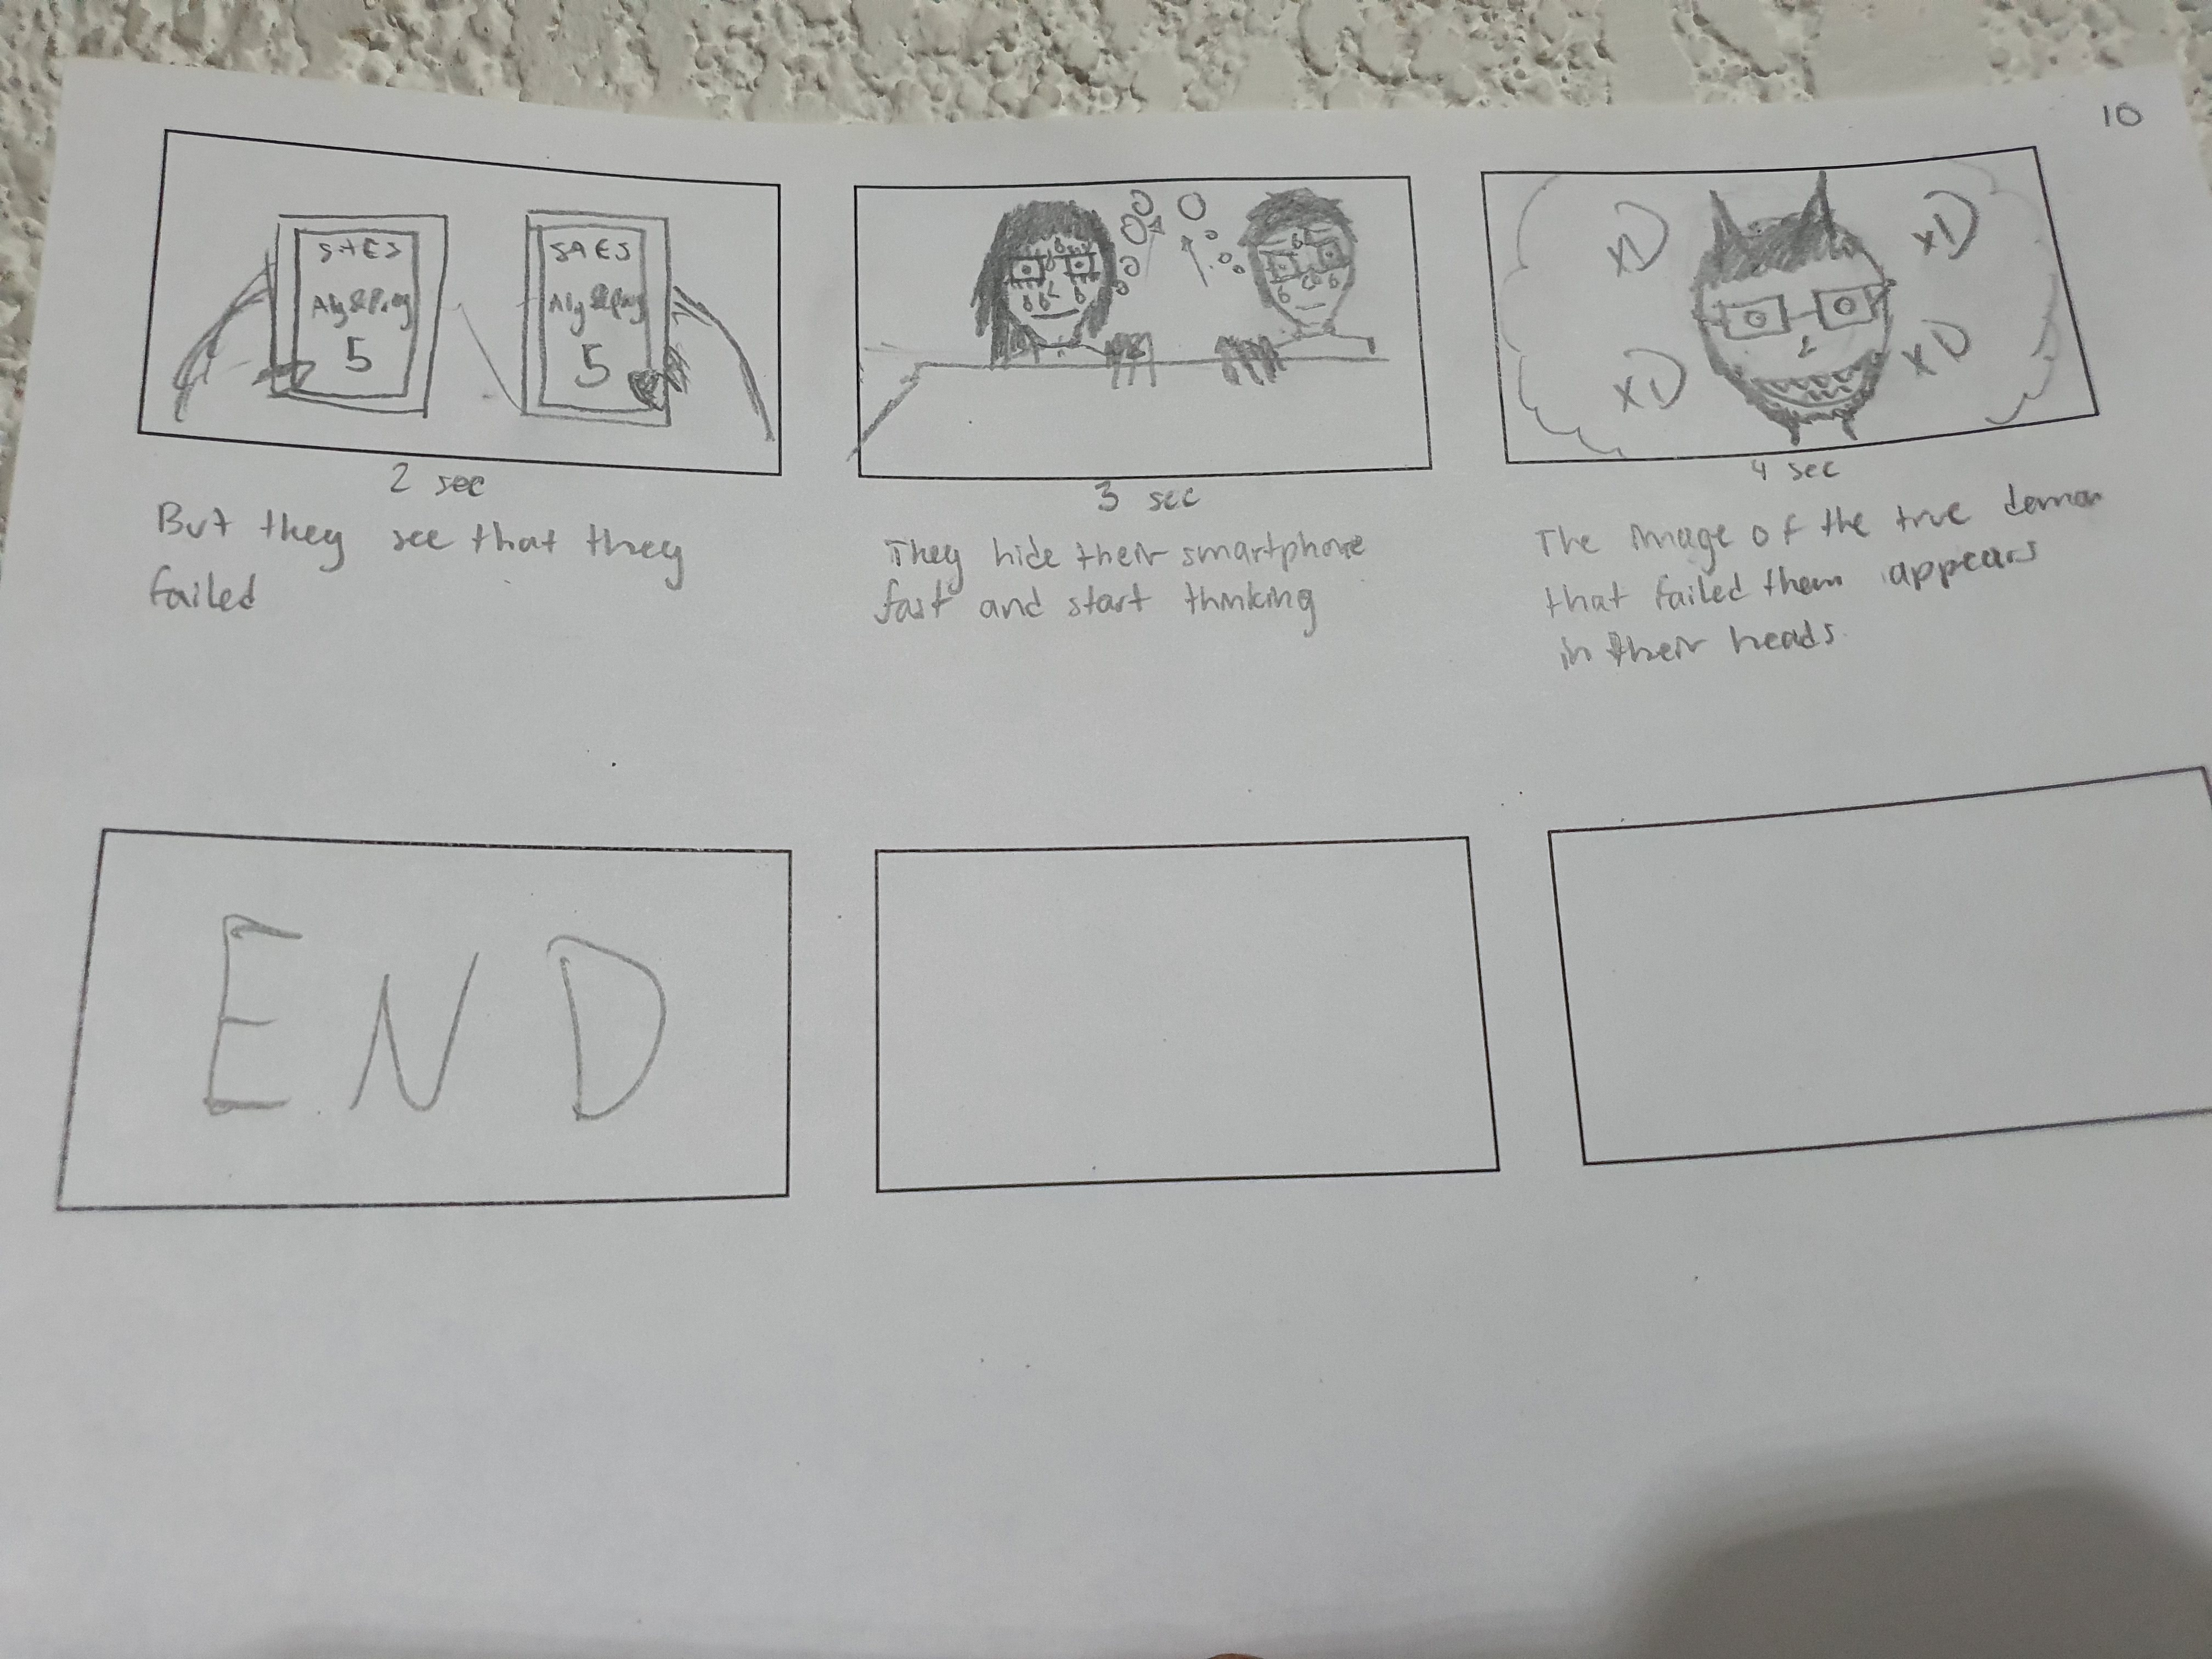 10
SAES
Alg & Prog
5
SAES
Alg & Prog
5
xD
xD
xD
xD
2 sec
But they see that they
failed
3 sec
They hide their smartphone
fast and start thinking
4 sec
The image of the true demon
that failed them appears
in their heads.
END